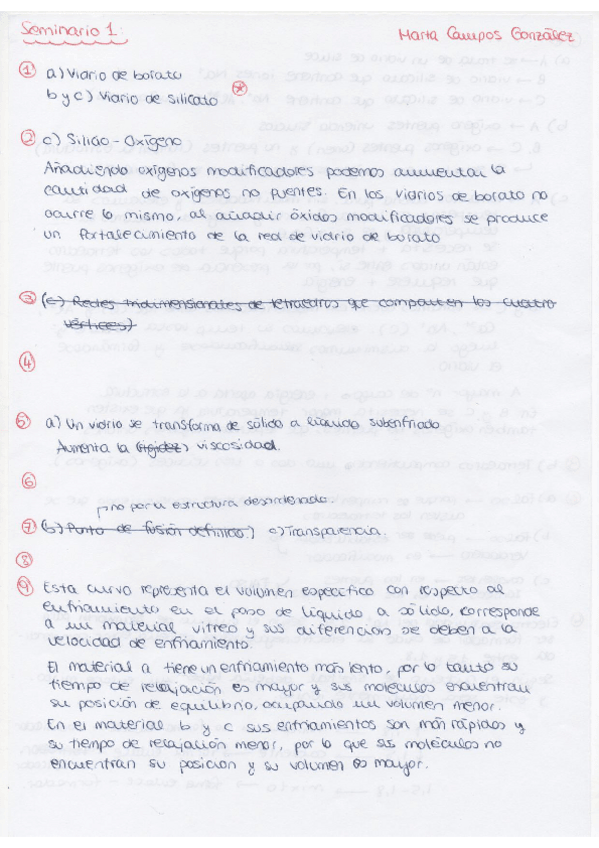 Seminario 1:
Marta Campos González
① a) Vidrio de borato
b y c) Vidrio de silicato ⊛
② c) Silicio - Oxígeno
Añadiendo oxígenos modificadores podemos aumentar la
cantidad de oxígenos no puentes. En los vidrios de borato no
ocurre lo mismo, al añadir óxidos modificadores se produce
un fortalecimiento de la red de vidrio de borato
③ (c) Redes tridimensionales de tetraedros que comparten los cuatro
vértices)
④
⑤ a) Un vidrio se transforma de sólido a líquido subenfriado
Aumenta la (rigidez) viscosidad.
⑥
no por su estructura desordenada.
⑦ (b) Punto de fusión definido.) a) Transparencia.
⑧
⑨ Esta curva representa el volumen específico con respecto al
enfriamiento en el paso de líquido a sólido, corresponde
a un material vítreo y sus diferencias se deben a la
velocidad de enfriamiento.
El material a tiene un enfriamiento más lento, por lo tanto su
tiempo de relajación es mayor y sus moléculas encuentran
su posición de equilibrio, ocupando un volumen menor.
En el material b y c sus enfriamientos son más rápidos y
su tiempo de relajación menor, por lo que sus moléculas no
encuentran su posición y su volumen es mayor.